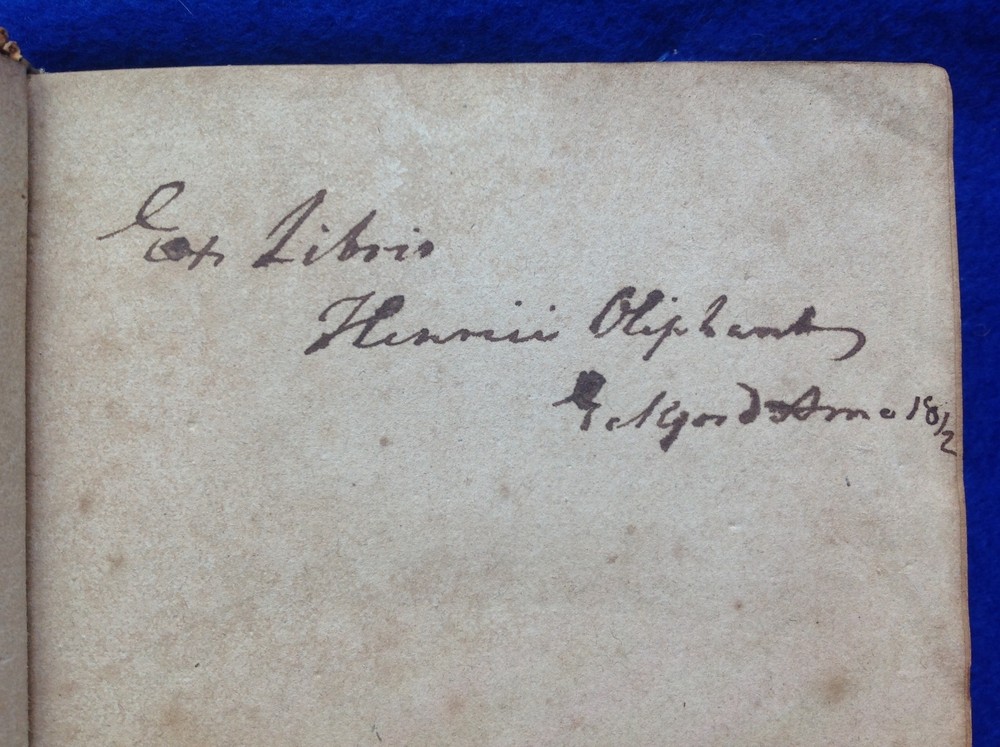 Ex Libris
Henrici Oliphant
Eckford Anno 1812